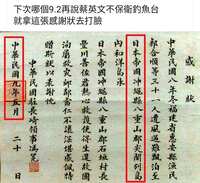 下次哪個9.2再說蔡英文不保衛釣魚台
就拿這張感謝狀去打臉
感謝狀
中華民國八年冬福建省惠安縣漁民
郭合順等三十一人遭風遇難飄泊至
日本帝國沖繩縣八重山郡尖閣列島
內和洋島承
日本帝國沖繩縣八重山郡石垣村長
豐川善佐君熱心救護使得生還故國
洵屬救災恤鄰當仁不讓深堪感佩特
贈斯狀以表謝忱
中華民國駐長崎領事馮冕
中華民國九年五月二十日